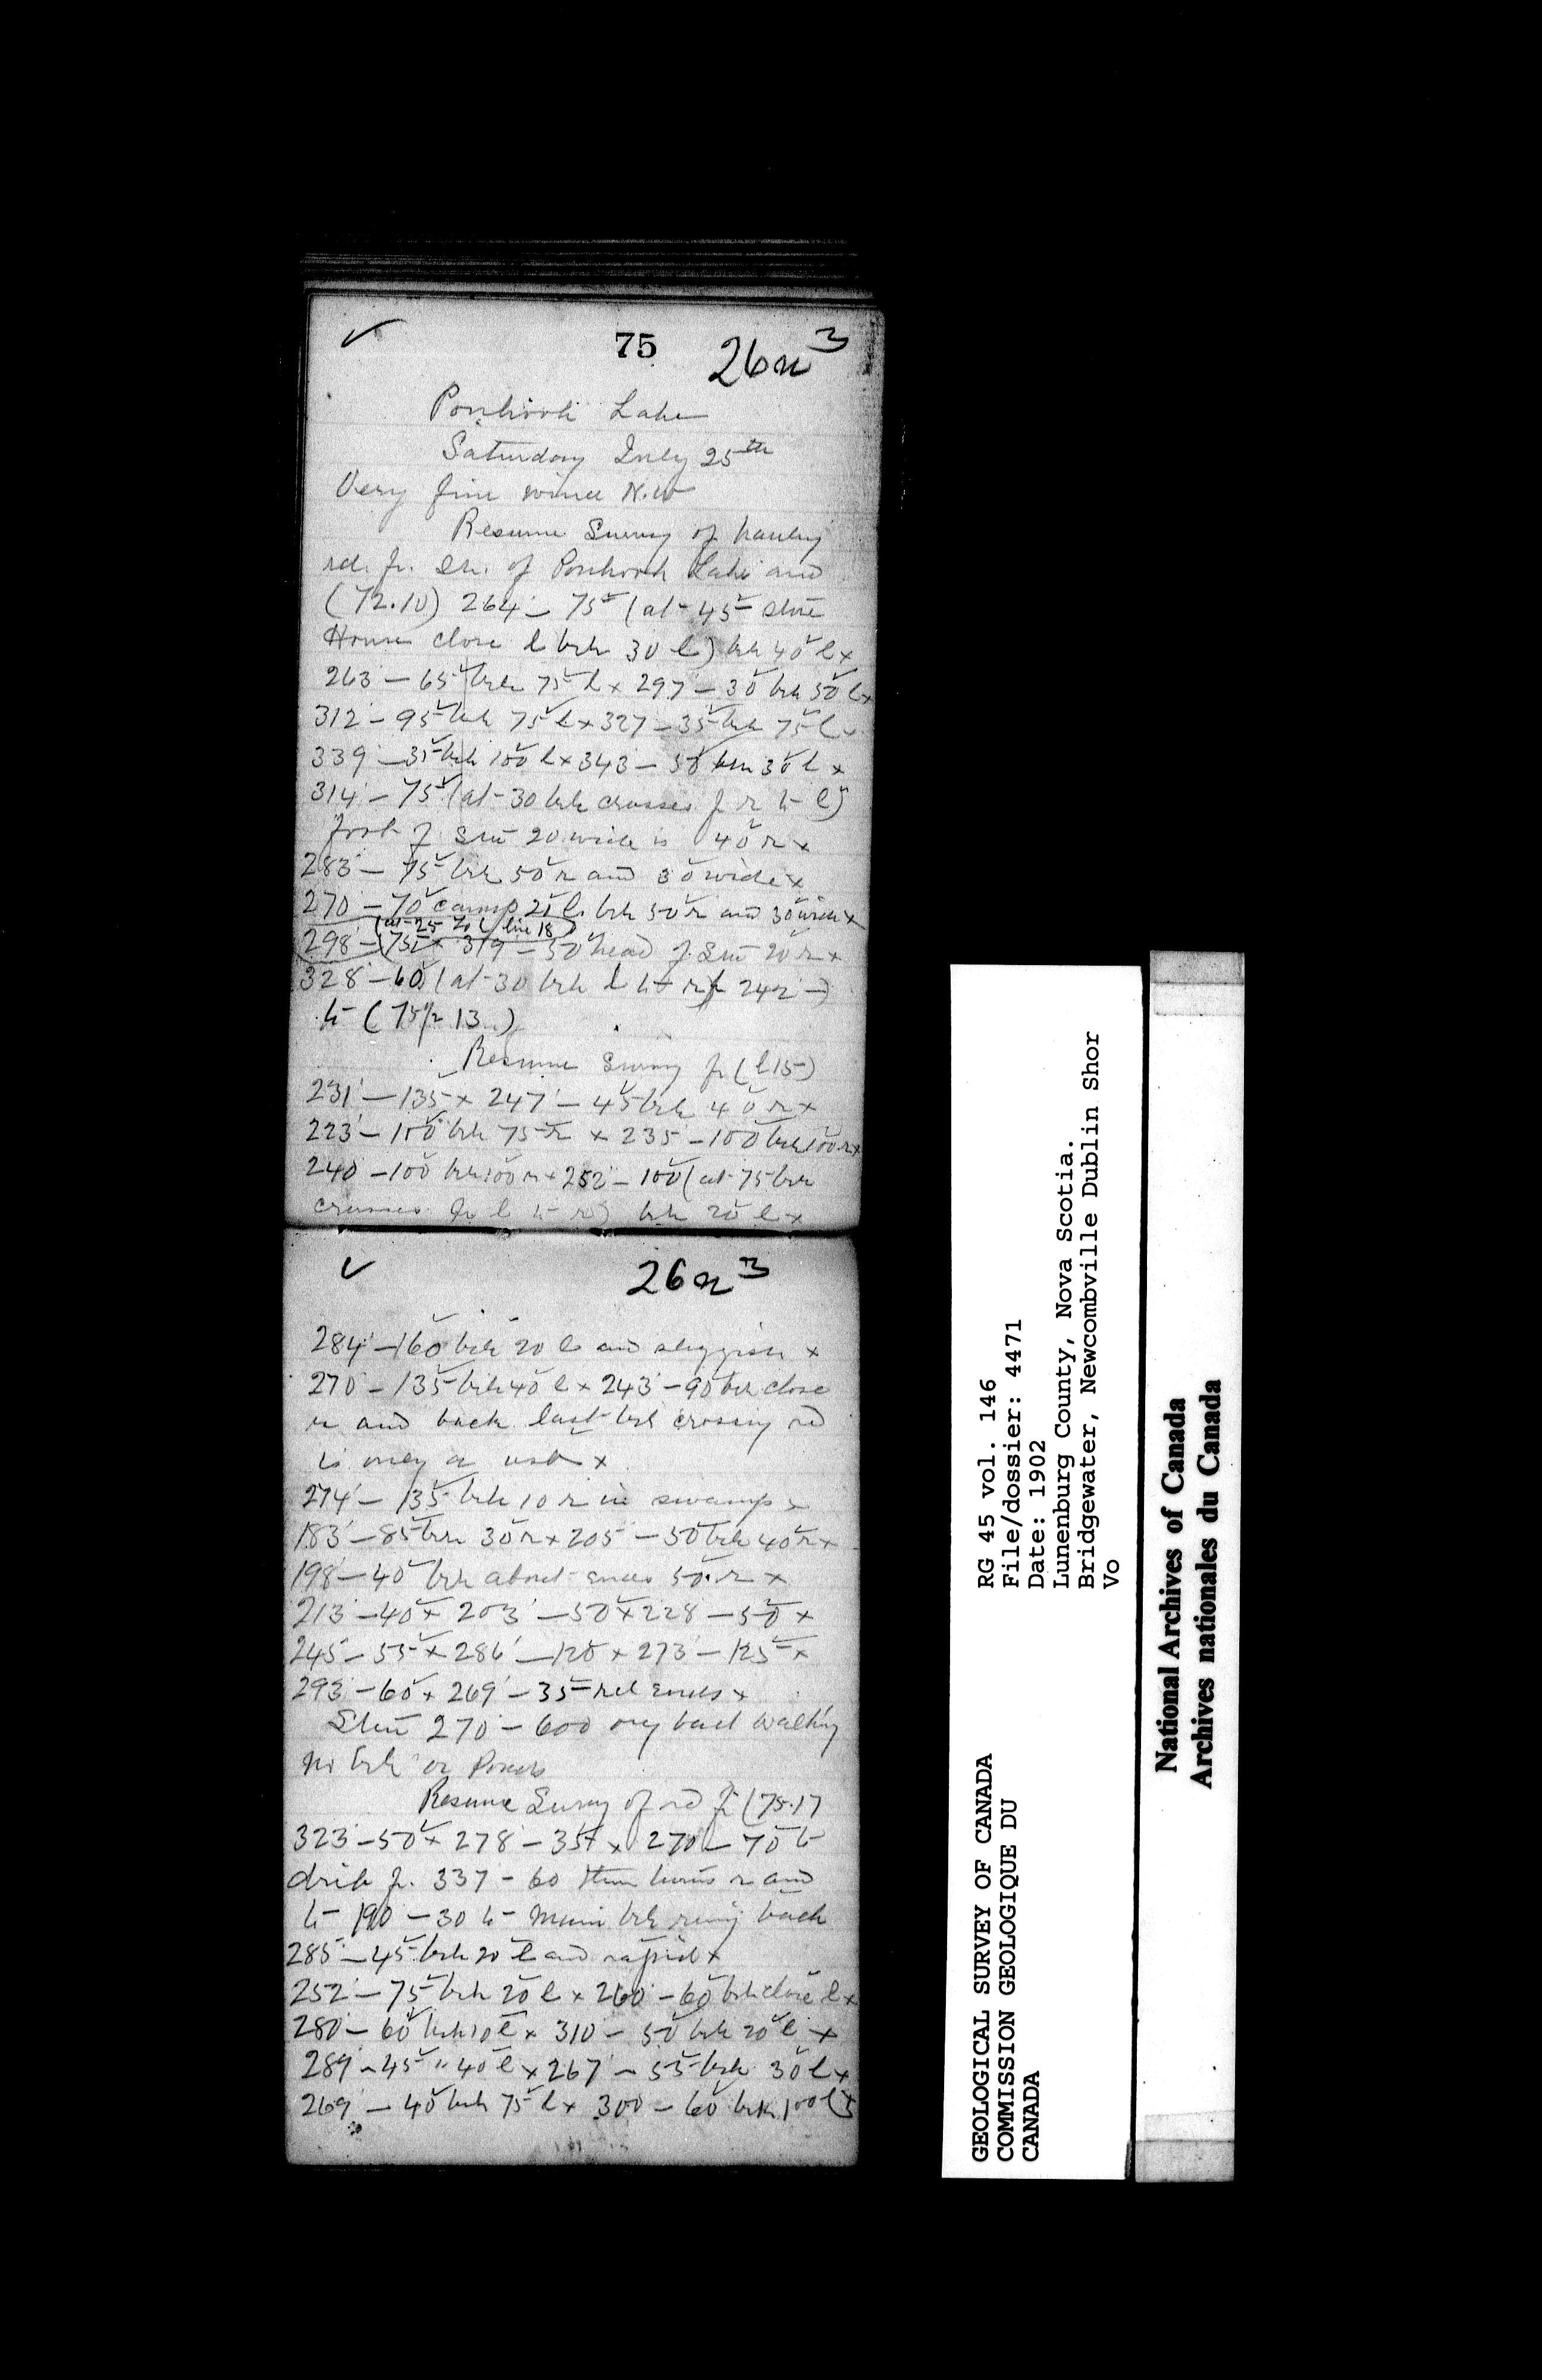 75
26n3
Ponhook Lake
Saturday July 25th
Very fine wind N.W
Resume Survey of hauling
rd. fr. of Ponhook Lake and
(72.10) 264 - 75 (at 45 stone
House close l brk 30 l) brk 40 l x
263 - 65 brk 75 l x 297 - 30 brk 50 l x
312 - 95 brk 75 l x 327 - 35 brk 75 l x
339 - 35 brk 100 l x 343 - 50 brk 30 l x
314 - 75 (at 30 brk crosses fr r to l)
foot of 20 wide is 40 r x
283 - 75 brk 50 r and 30 wide x
270 - 70 camp 25 l. brk 50 r and 30 wide x
(at 25 20 l line 18)
298 - 75 x 319 - 50 head of 20 r x
328 - 60 (at 30 brk l to r fr 242 -)
to (75 1/2 13)
Resume Survey fr (l 15)
231 - 135 x 247 - 45 brk 40 r x
223 - 100 brk 75 r x 235 - 100 brk 100 r x
240 - 100 brk 100 r x 252 - 100 (at 75 brk
crosses fr l to r) brk 20 l x
26n3
284 - 160 brk 20 l and sluggish x
270 - 135 brk 40 l x 243 - 90 brk close
r and back last brk crossing rd
is only a x
274 - 135 brk 10 r in swamp x
183 - 85 brk 30 r x 205 - 50 brk 40 r x
198 - 40 brk about ends 50 r x
213 - 40 x 203 - 50 x 228 - 50 x
245 - 55 x 286 - 120 x 273 - 125 x
293 - 60 x 269 - 35 rd ends x
270 - 600 very bad walking
no brk or Ponds
Resume Survey of rd fr (75.17
323 - 50 x 278 - 35 x 270 - 70 to
fr. 337 - 60 then turns r and
to 190 - 30 to main brk back
285 - 45 brk 20 l and rapid x
252 - 75 brk 20 l x 260 - 60 brk close l x
280 - 60 brk 10 l x 310 - 50 brk 20 l x
289 - 45 " 40 l x 267 - 55 brk 30 l x
269 - 40 brk 75 l x 300 - 60 brk 100 l x
GEOLOGICAL SURVEY OF CANADA
COMMISSION GEOLOGIQUE DU
CANADA
RG 45 vol. 146
File/dossier: 4471
Date: 1902
Lunenburg County, Nova Scotia.
Bridgewater, Newcombville Dublin Shor
Vo
National Archives of Canada
Archives nationales du Canada